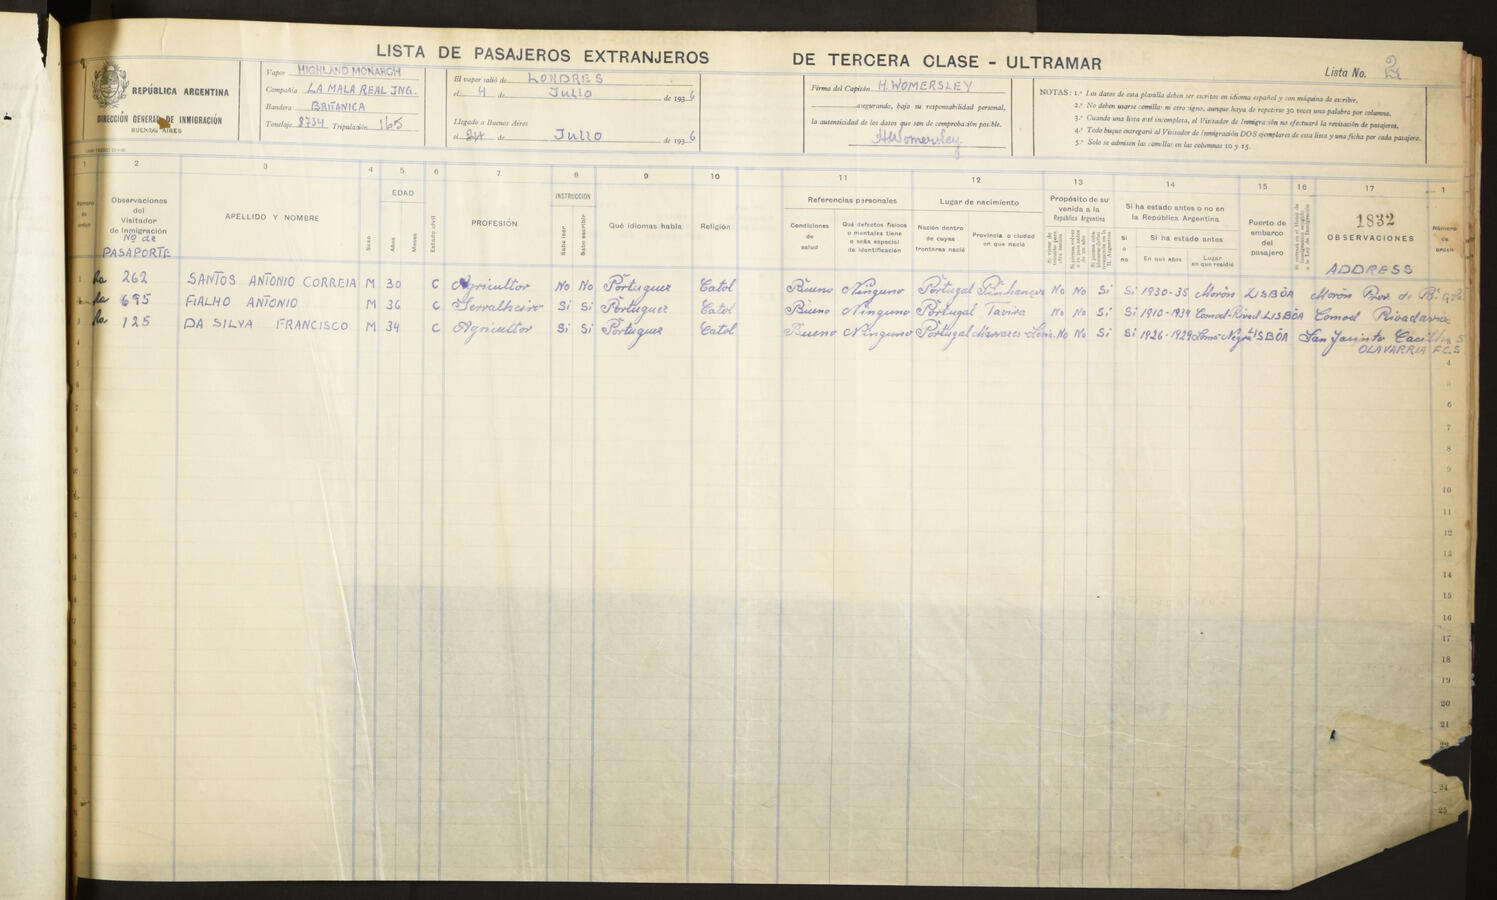 LISTA DE PASAJEROS EXTRANJEROS DE TERCERA CLASE - ULTRAMAR
Lista No. 2
REPÚBLICA ARGENTINA
DIRECCIÓN GENERAL DE INMIGRACIÓN
BUENOS AIRES
Vapor HIGHLAND MONARCH
Compañía LA MALA REAL ING.
Bandera BRITANICA
Tonelaje 8734 Tripulación 165
El vapor salió de LONDRES
el 4 de Julio de 1936
Llegado a Buenos Aires
el 24 de Julio de 1936
Firma del Capitán H. WOMERSLEY
asegurando, bajo su responsabilidad personal,
la autenticidad de los datos que son de comprobación posible.
H Womersley
NOTAS: 1.ª Los datos de esta planilla deben ser escritos en idioma español y con máquina de escribir.
2.ª No deben usarse comillas ni otro signo, aunque haya de repetirse 30 veces una palabra por columna.
3.ª Cuando una lista esté incompleta, el Visitador de Inmigración no efectuará la revisación de pasajeros.
4.ª Todo buque entregará al Visitador de Inmigración DOS ejemplares de esta lista y una ficha por cada pasajero.
5.ª Solo se admiten las comillas en las columnas 10 y 15.
1 2 3 4 5 6 7 8 9 10 11 12 13 14 15 16 17 1
Número de orden
Observaciones del Visitador de Inmigración
Nº de PASAPORTE
APELLIDO Y NOMBRE
Sexo
EDAD
Años
Meses
Estado civil
PROFESIÓN
INSTRUCCIÓN
Sabe leer
Sabe escribir
Qué idiomas habla
Religión
Referencias personales
Condiciones de salud
Qué defectos físicos o mentales tiene o seña especial de identificación
Lugar de nacimiento
Nación dentro de cuyas fronteras nació
Provincia o ciudad en que nació
Propósito de su venida a la República Argentina
Si ha estado antes o no en la República Argentina
Si o no
Si ha estado antes
En qué años
Lugar en que residió
Puerto de embarco del pasajero
1832
OBSERVACIONES
ADDRESS
Número de orden
1 262 SANTOS ANTONIO CORREIA M 30 C Agricultor No No Portuguez Catol Bueno Ninguno Portugal Pinhanços No No Si Si 1930-35 Morón LISBÔA Morón Prov de
695 FIALHO ANTONIO M 36 C Serralheiro Si Si Portuguez Catol Bueno Ninguno Portugal Tavira No No Si Si LISBÔA Comod Rivadavia
125 DA SILVA FRANCISCO M 34 C Agricultor Si Si Portuguez Catol Bueno Ninguno Portugal No No Si Si 1926-1929 LISBÔA San Jacinto
OLAVARRIA F.C.S.
4
5
6
7
8
9
10
11
12
13
14
15
16
17
18
19
20
21
22
24
25